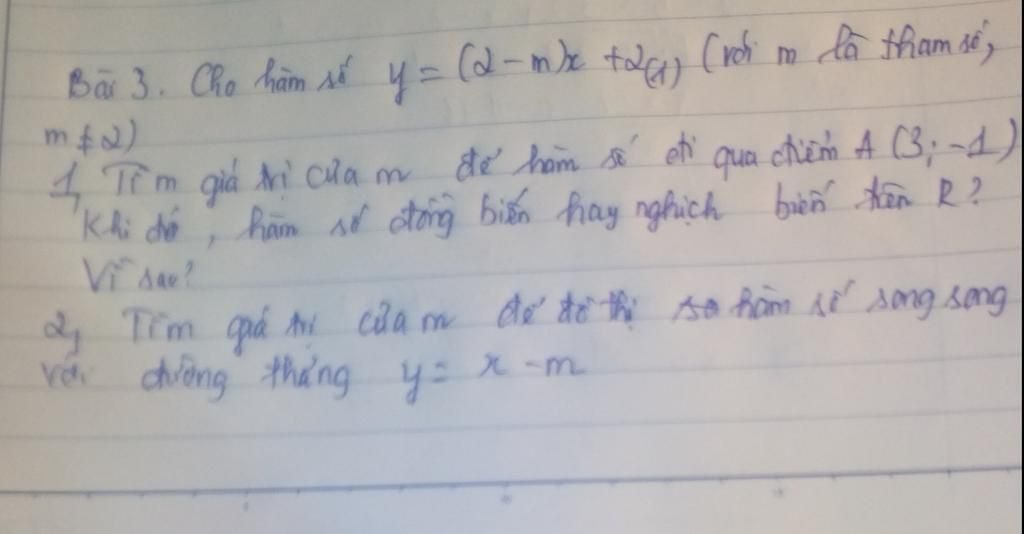 Bài 3. Cho hàm số y = (2 - m)x + 2(1) (với m là tham số,
m ≠ 2)
1, Tìm giá trị của m để hàm số đi qua điểm A (3; -1)
Khi đó, hàm số đồng biến hay nghịch biến trên R?
Vì sao?
2, Tìm giá trị của m để đồ thị hàm số song song
với đường thẳng y = x - m